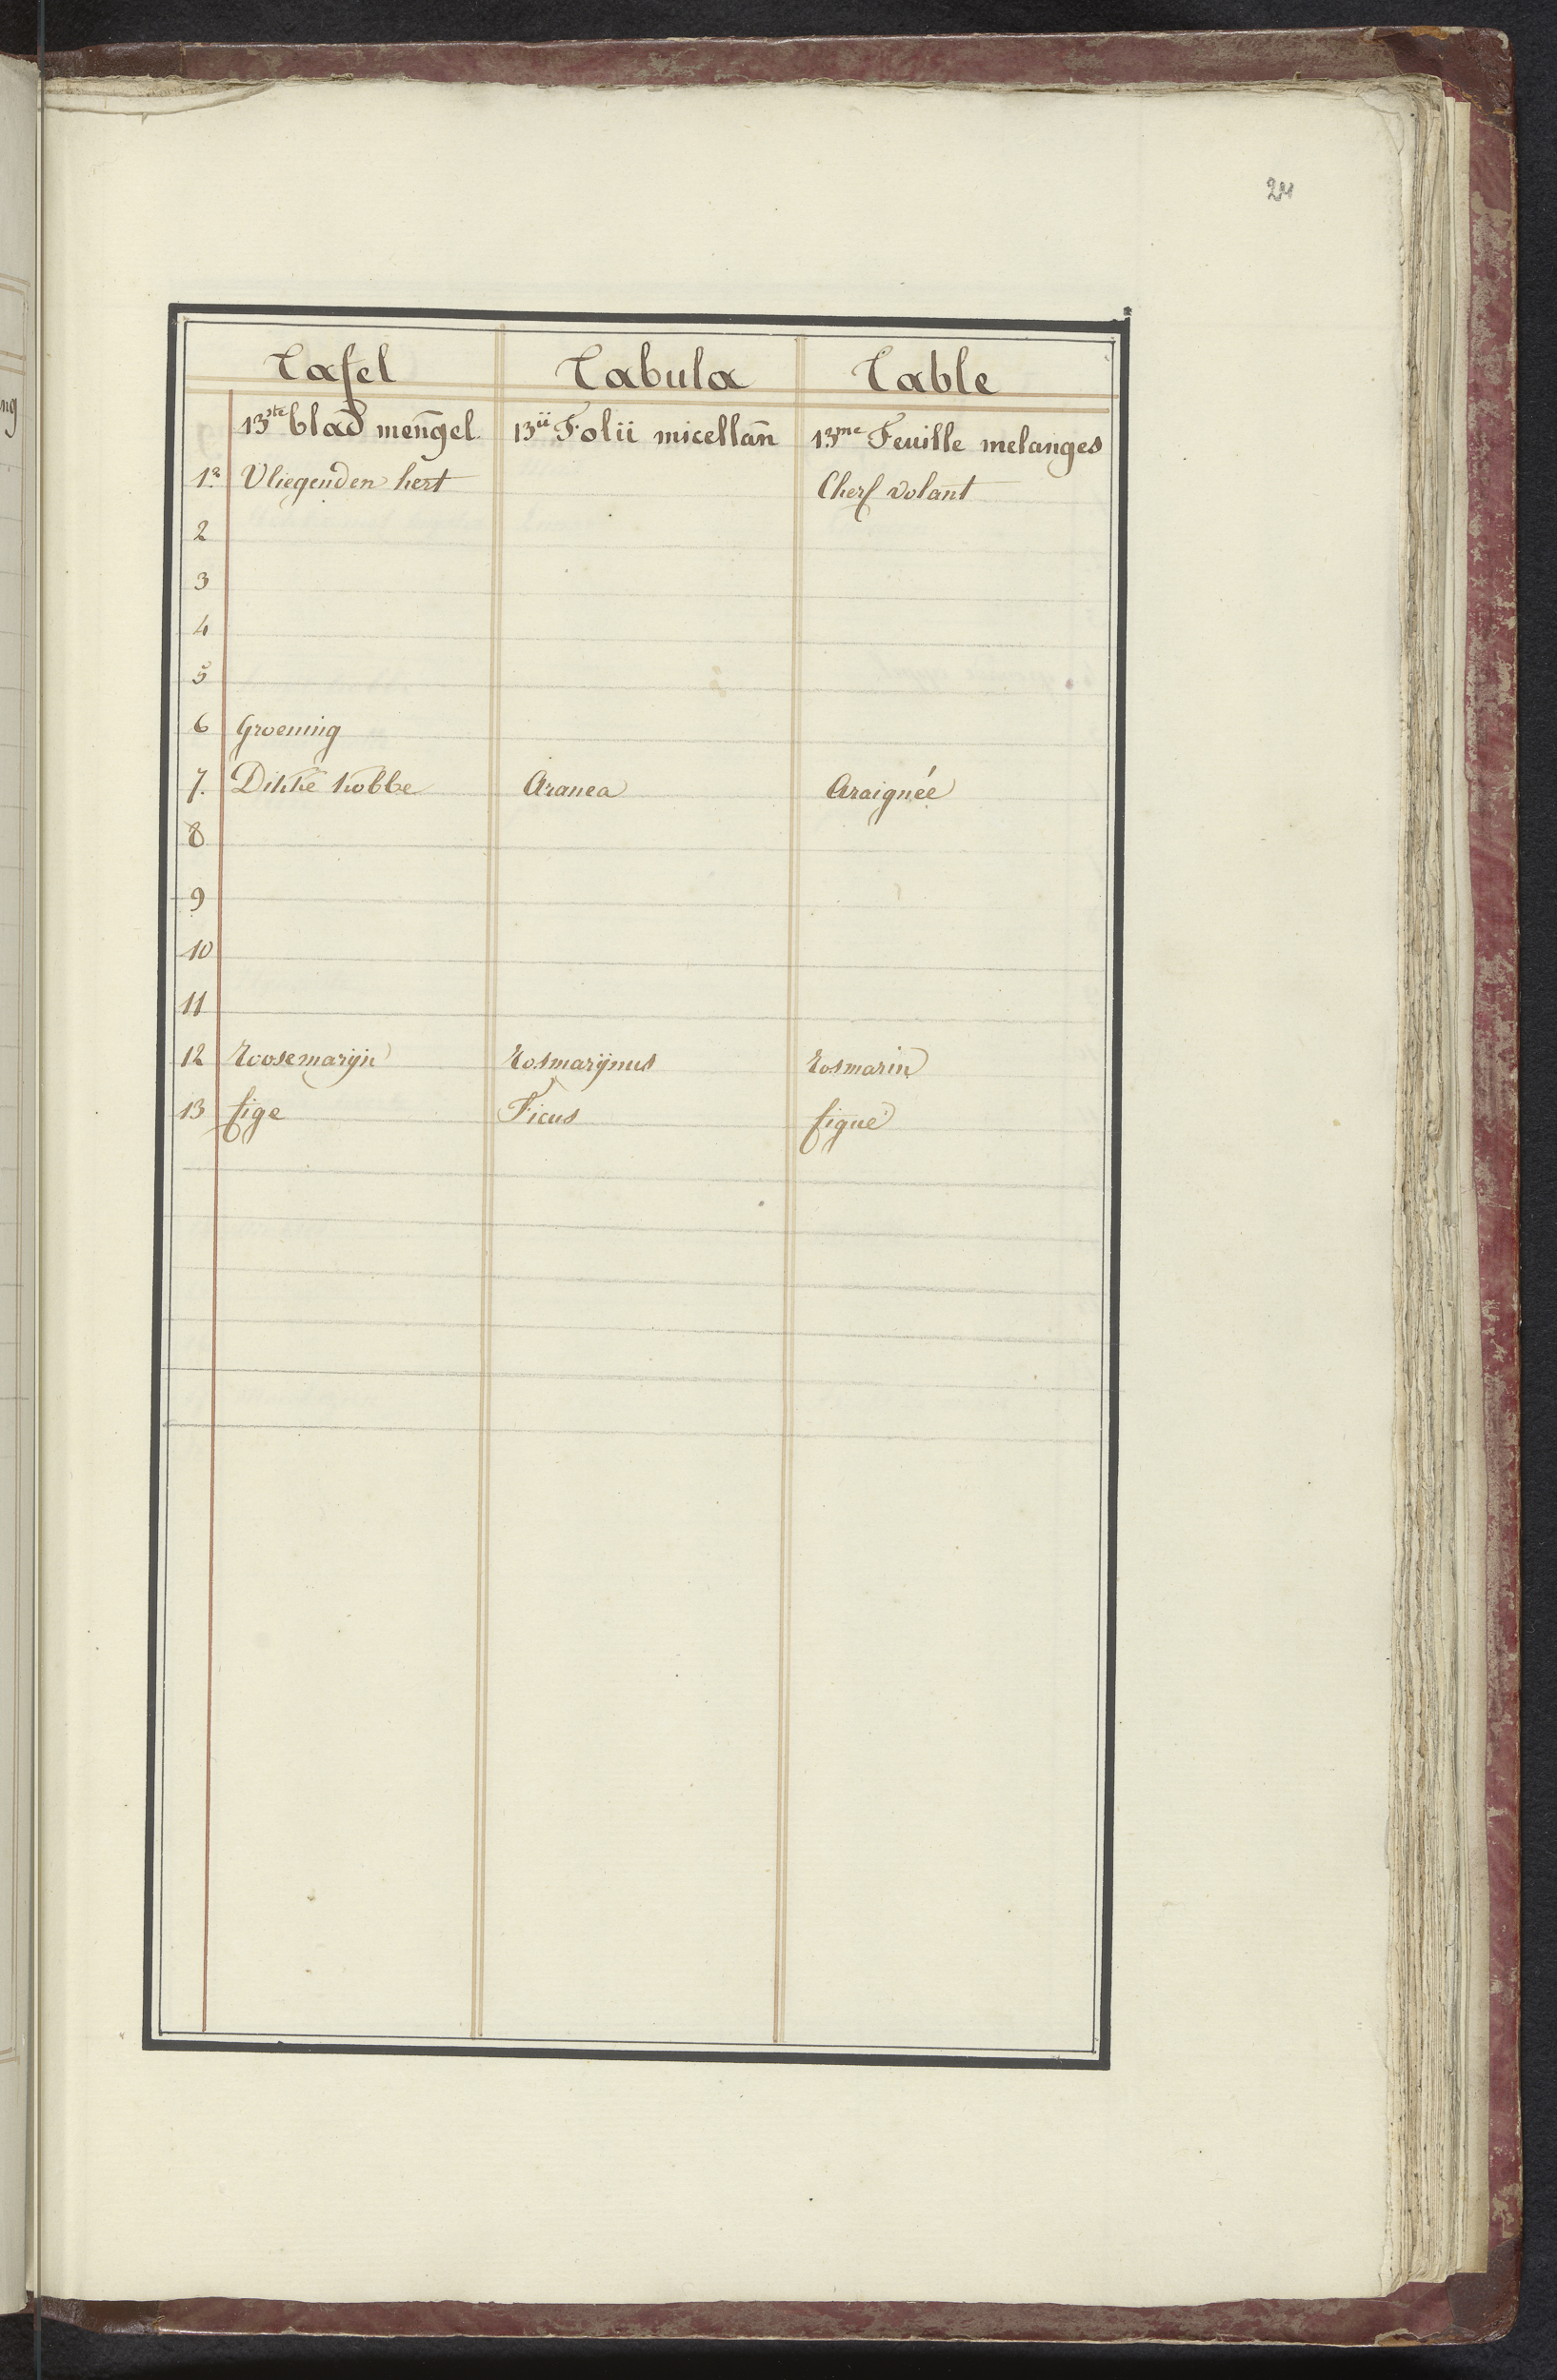 24
ng
Tafel Tabula Table
13ste blad meñgel 13ii Folii micellañ 13me Feuille melanges
1a Vliegenden hert Cherf volant
2
3
4
5
6 Groening
7. Dikke kobbe Aranea Araignée
8
9
10
11
12 Roosemarijn Rosmarijnus Rosmarin
13 fige Ficus figue